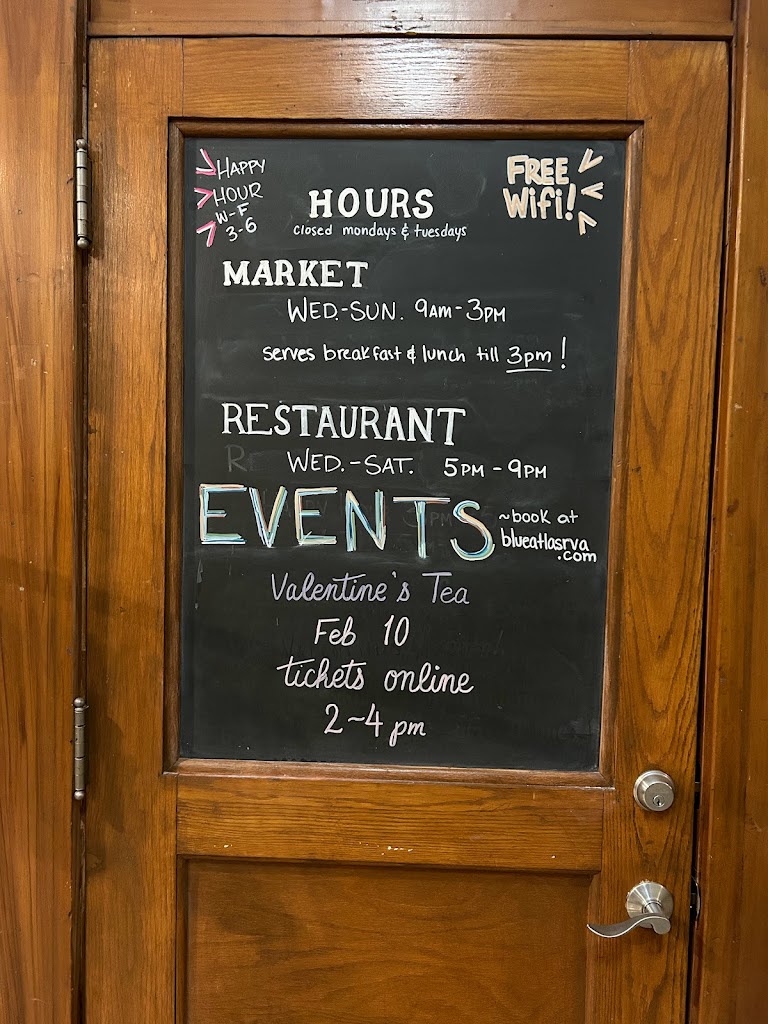 HAPPY
HOUR
W-F
3-6
FREE
Wifi!
HOURS
closed mondays & tuesdays
MARKET
WED.-SUN. 9AM-3PM
serves breakfast & lunch till 3pm!
RESTAURANT
WED.-SAT. 5PM-9PM
EVENTS
~book at
blueatlasrva
.com
Valentine's Tea
Feb 10
tickets online
2~4 pm